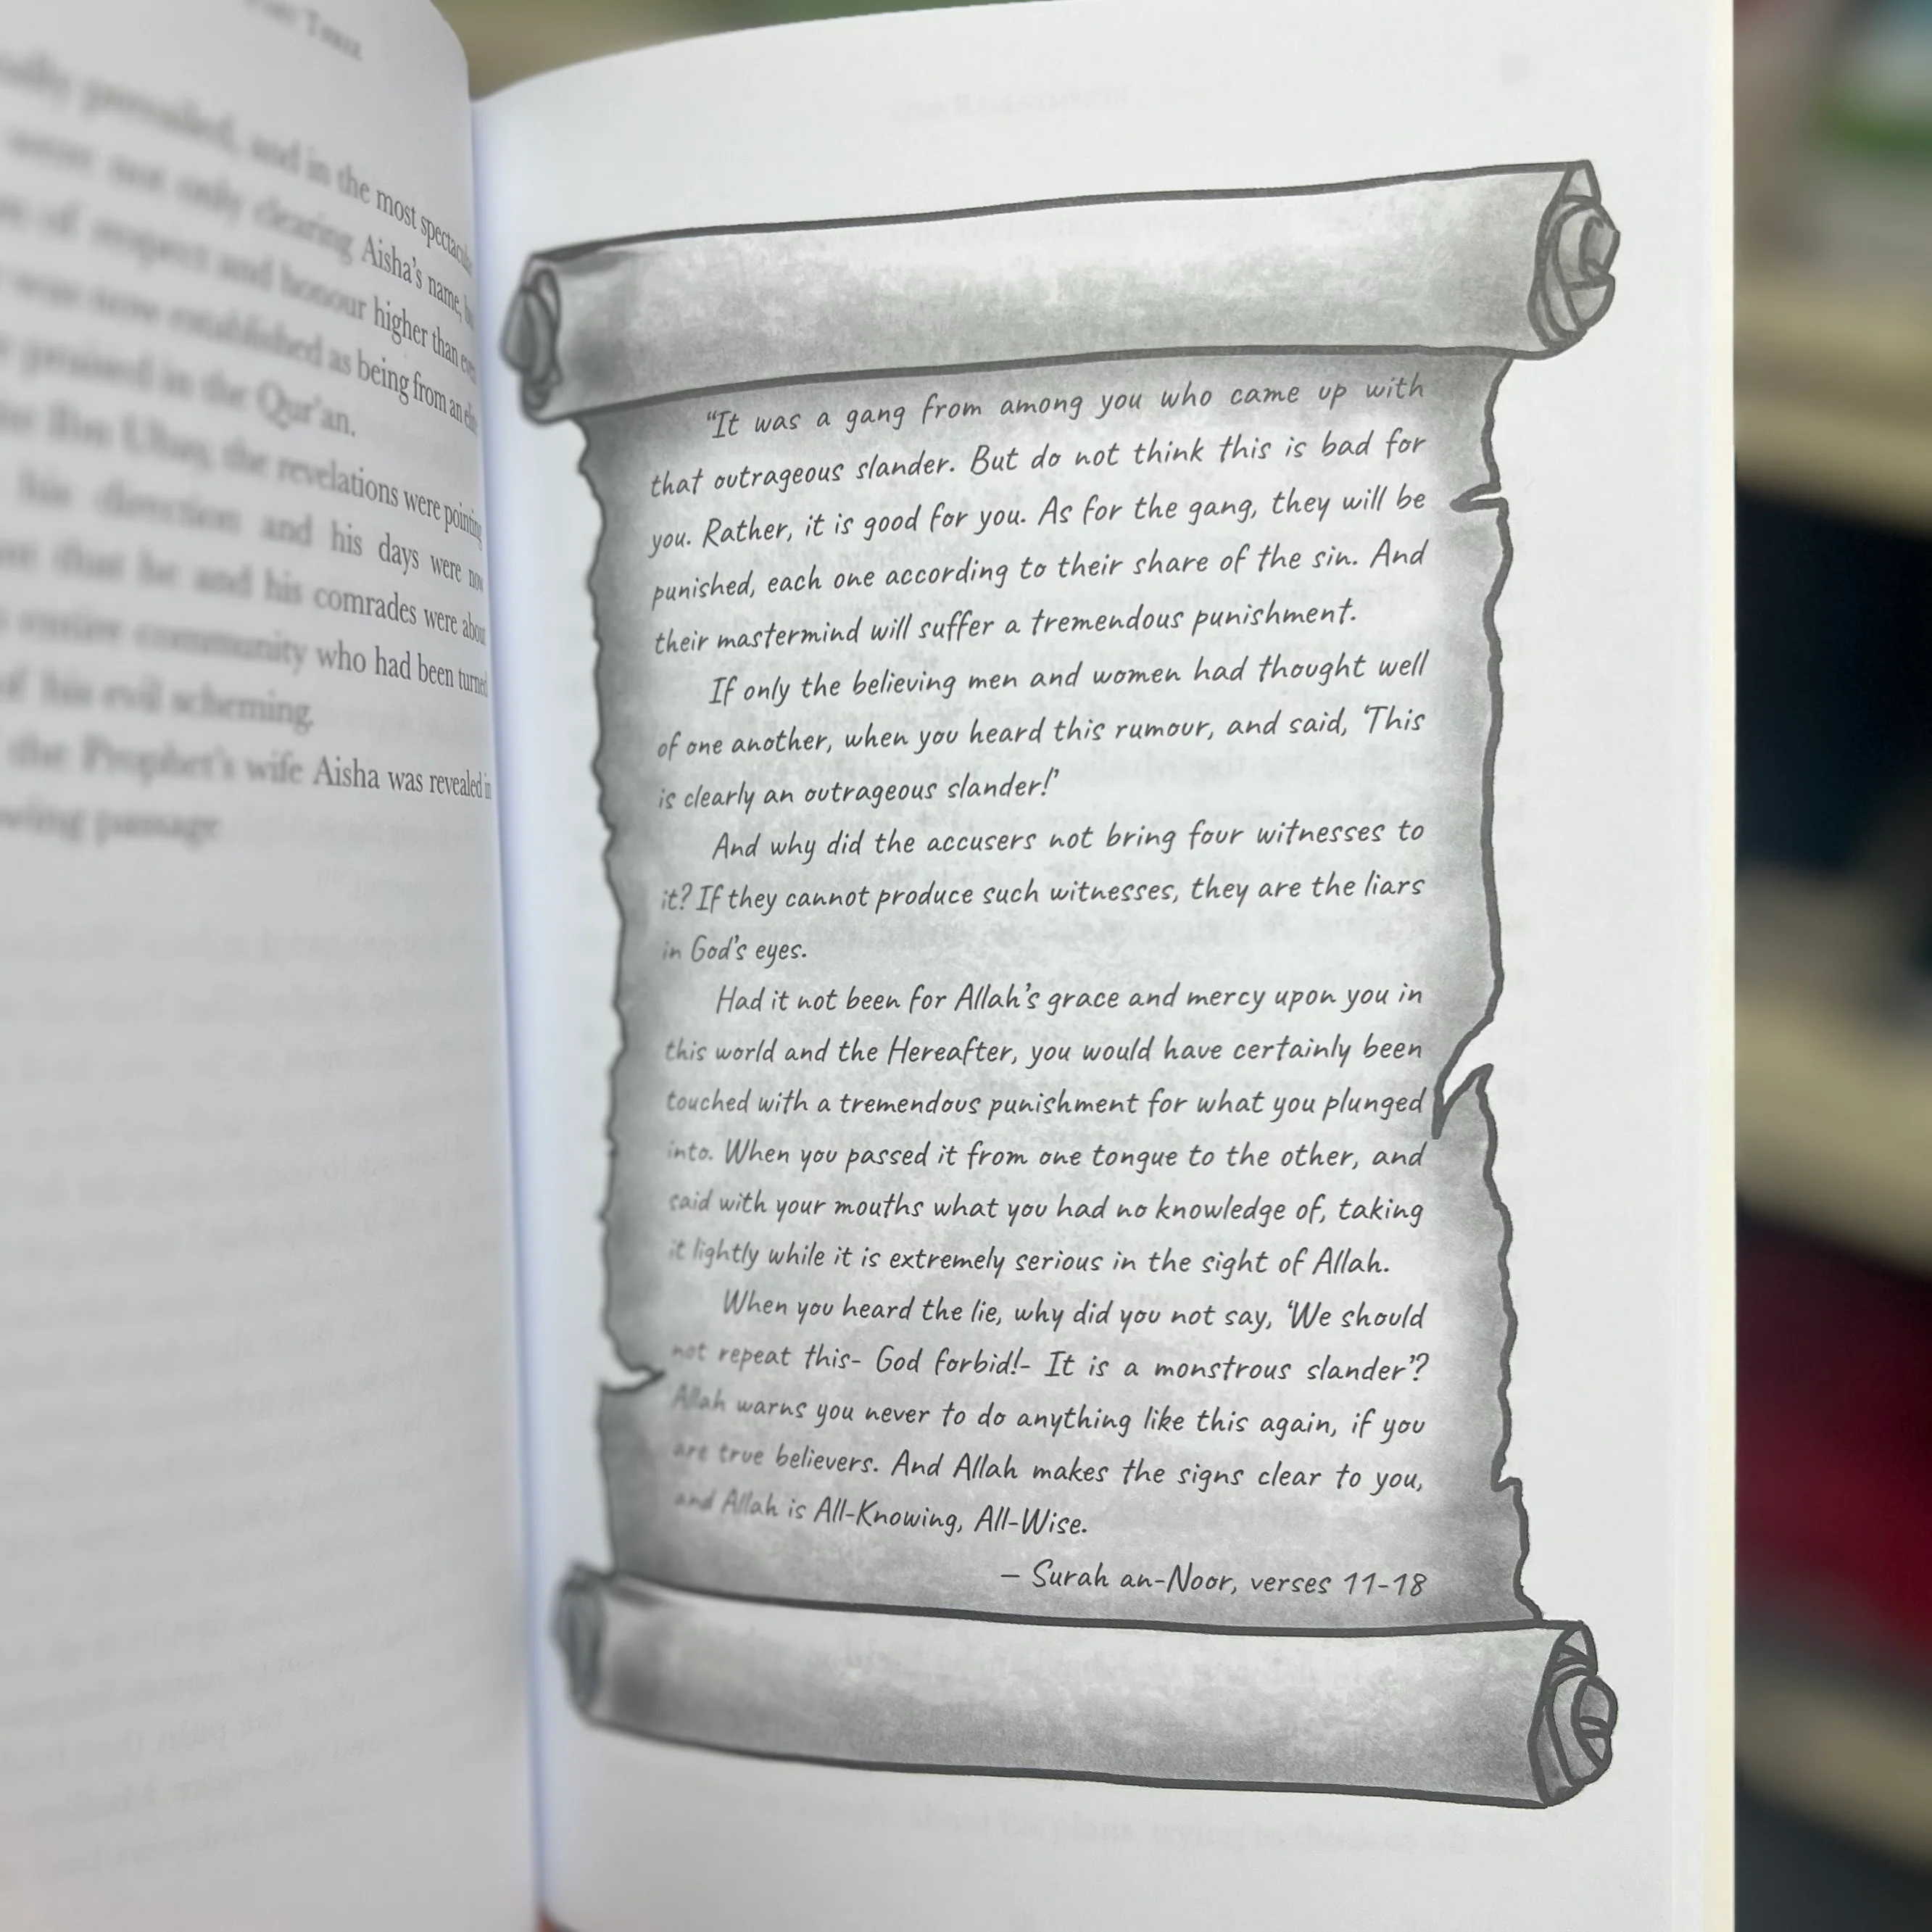 ally prevailed, and in the most
were not only clearing Aisha's name,
of respect and honour higher than
was now established as being from an
praised in the Qur'an.
Ibn Ubay, the revelations were pointing
his direction and his days were now
that he and his comrades were about
entire community who had been turned
of his evil scheming.
the Prophet's wife Aisha was revealed in
passage
"It was a gang from among you who came up with
that outrageous slander. But do not think this is bad for
you. Rather, it is good for you. As for the gang, they will be
punished, each one according to their share of the sin. And
their mastermind will suffer a tremendous punishment.
If only the believing men and women had thought well
of one another, when you heard this rumour, and said, 'This
is clearly an outrageous slander!'
And why did the accusers not bring four witnesses to
it? If they cannot produce such witnesses, they are the liars
in God's eyes.
Had it not been for Allah's grace and mercy upon you in
this world and the Hereafter, you would have certainly been
touched with a tremendous punishment for what you plunged
into. When you passed it from one tongue to the other, and
said with your mouths what you had no knowledge of, taking
it lightly while it is extremely serious in the sight of Allah.
When you heard the lie, why did you not say, 'We should
not repeat this- God forbid!- It is a monstrous slander'?
Allah warns you never to do anything like this again, if you
are true believers. And Allah makes the signs clear to you,
and Allah is All-Knowing, All-Wise.
– Surah an-Noor, verses 11-18